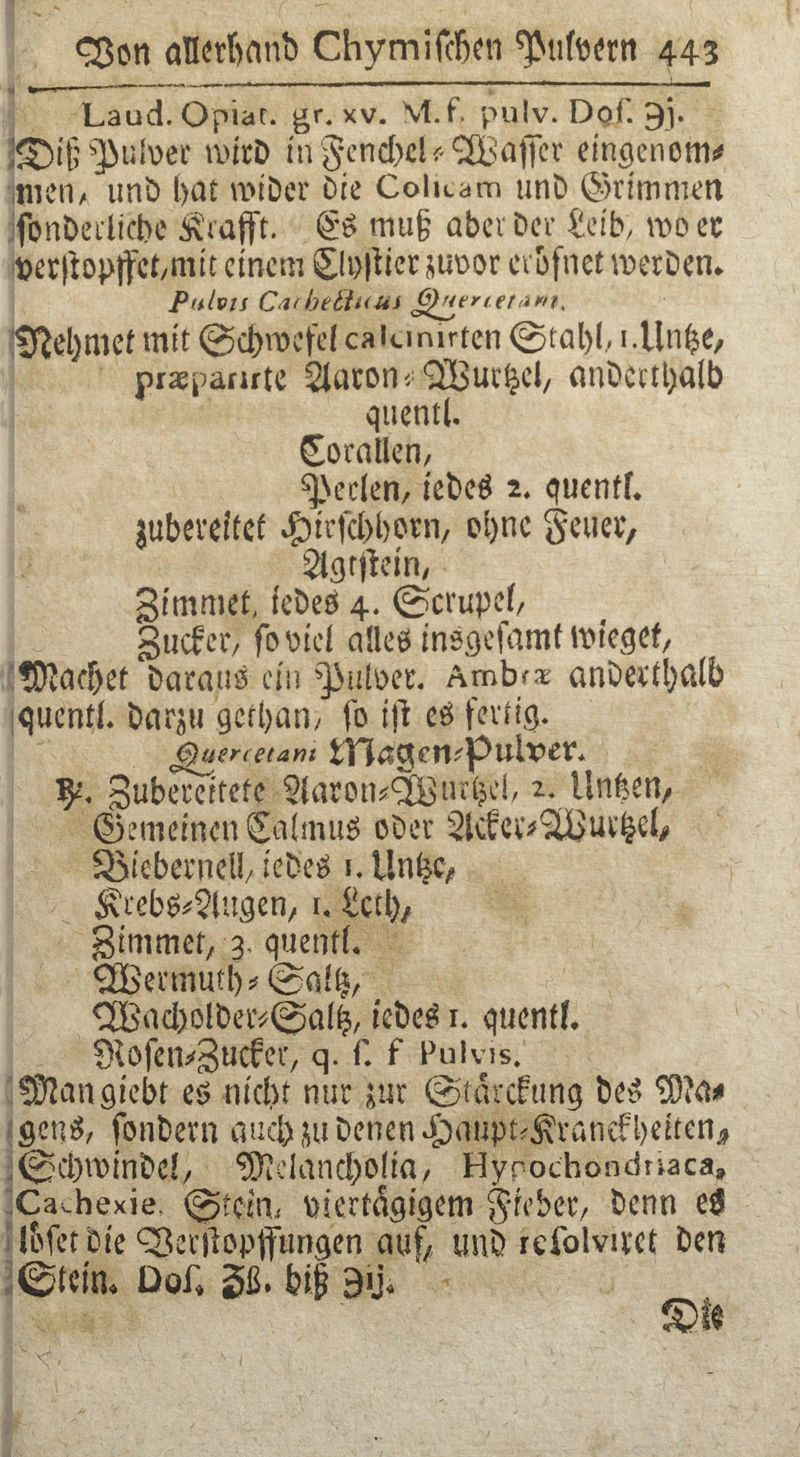 Von allerhand Chymischen Pulvern 443
Laud. Opiat. gr. xv. M. f. pulv. Dos. ℈j.
Diß Pulver wird in Fenchel-Wasser eingenom-
men, und hat wider die Colicam und Grimmen
sonderliche Krafft. Es muß aber der Leib, wo er
verstopffet, mit einem Clystier zuvor eröfnet werden.
Pulvis Cachecticus Quercetani.
Nehmet mit Schwefel calcinirten Stahl, 1. Untze,
præparirte Aaron-Wurtzel, anderthalb
quentl.
Corallen,
Perlen, iedes 2. quentl.
zubereitet Hirschhorn, ohne Feuer,
Agtstein,
Zimmet, iedes 4. Scrupel,
Zucker, so viel alles insgesamt wieget,
Machet daraus ein Pulver. Ambræ anderthalb
quentl. darzu gethan, so ist es fertig.
Quercetani Magen-Pulver.
℞. Zubereitete Aaron-Wurtzel, 2. Untzen,
Gemeinen Calmus oder Acker-Wurtzel,
Biebernell, iedes 1. Untze,
Krebs-Augen, 1. Loth,
Zimmet, 3. quentl.
Wermuth-Saltz,
Wacholder-Saltz, iedes 1. quentl.
Rosen-Zucker, q. s. f Pulvis.
Man giebt es nicht nur zur Stärckung des Ma-
gens, sondern auch zu denen Haupt-Kranckheiten,
Schwindel, Melancholia, Hypochondriaca,
Cachexie, Stein, viertägigem Fieber, denn es
löset die Verstopffungen auf, und resolviret den
Stein. Dos. ʒß. biß ℈ij.
Die